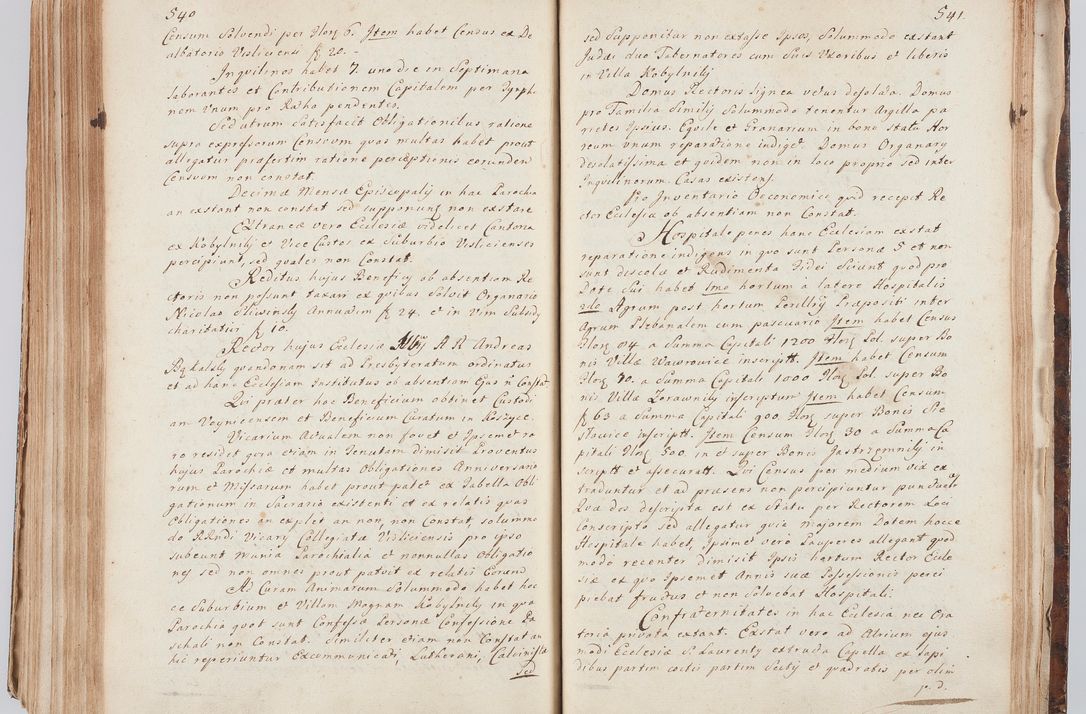 540
Censum Solvendi per Flor 6. Item habet Census ex De
albatorio Visliciensi f 20.-
Inquilinos habet 7. uno die in Septimana
laborantes et Contributionem Capitalem per Tymph
nem Unum pro Ratha pendentes.
Sed utrum Satisfacit Obligationibus ratione
supra expressorum Censuum quas multas habet prout
allegatur præsertim ratione perceptionis eorunden
Censuum non constat.
Decimæ Mensæ Episcopalij in hac Parochia
an exstant non constat sed supponunt non exstare
Extraneæ vero Ecclesiæ videlicet Cantoria
ex Kobylniky et Vice Custos ex Suburbio Visliciensi
percipiunt, sed quales non Constat.
Reditus hujus Beneficij ob absentiam Re
ctoris non possunt taxari ex quibus Solvit Organario
Nicolao Sliwinsky Annuatim f 24. et in Vim Subsidy
charitativi f 10.
Rector hujus Ecclesiæ A R Andreas
Bąkalsky quandonam sit ad Presbyteratum ordinatus
et ad hanc Ecclesiam Institutus ob absentiam Ejus n Constat
Qui præter hoc Beneficium obtinet Custodi
am Voynicensem et Beneficium Curatum in Koszyce.
Vicarium Actualem non fovet et Ipsemet ra
ro residet quia etiam in Tenutam dimisit Proventus
hujus Parochiæ et multas Obligationes Anniversario
rum et Missarum habet prout patet ex Tabella Obli
gationum in Sacrario existenti et ex relatis quas
Obligationes an explet an non, non Constat, solummo
do RRndi Vicary Collegiatæ Visliciensis pro ipso
subeunt Munia Parochialia et nonnullas Obligatio
nes sed non omnes prout patuit ex relatis Eorund
Ad Curam Animarum Solummodo habet hoc
ce Suburbium et Villam Magnam Kobylniky in qua
Parochia quot sunt Confessæ Personæ Confessione Pa
schali non Constat. Similiter etiam non Constat an
hic reperiuntur Excommunicati, Lutherani, Calvinistæ
sed
541.
sed Supponitur non extasse Ipsos, Solummodo exstant
Judæi duo Tabernatores cum Suis Uxoribus et liberis
in Villa Kobylniky
Domus Rectoris lignea vetus desolata. Domus
pro Familia Simily Solummodo tenentur Argilla pa
rietes Ipsius. Equile et Granarium in bono Statu Hor
reum unum reparatione indiget Domus Organary
desolatissima et quidem non in loco proprio sed inter
Inquilinorum Casas existens.
Pro Inventario Oeconomico quod recepit Re
ctor Ecclesiæ ob absentiam non Constat.
Hospitale penes hanc Ecclesiam exstat
reparatione indigens in quo sunt Personæ 5 et non
sunt discolæ et Rudimenta Fidei Sciunt quod pro
Dote Sui habet Imo hortum a latere Hospitalis
2do Agrum post hortum Perillris Præpositi inter
Agrum Plebanalem cum pascuario Item habet Census
Flor 84 a Summa Capitali 1200 Flor Pol. super Bo
nis Villæ Wawrowice inscriptt. Item habet Censum
Flor 70. a Summa Capitali 1000 Flor Pol super Bo
nis Villæ Zorawniky inscriptum Item habet Censum
f 63 a Summa Capitali 900 Flor super Bonis Ste
stowice inscriptt. Item Censum Flor 30 a Summa Ca
pitali Flor 500. in et super Bonis Jastrzemniky in
scriptt et assecuratt. Qui Census per medium via ex
traduntur et ad præsens non percipiuntur punctual
Quæ dos descripta est ex Statu per Rectorem Loci
Conscripto sed allegatur quia majorem Dotem hocce
Hospitale habet, Ipsimet vero Pauperes allegant quod
modo recenter dimisit Ipsis hortum Rector Eccle
siæ ex quo Ipsemet Annis suæ Possessionis perci
piebat fructus et non Solvebat Hospitali.
Confraternitates in hac Ecclesia nec Ora
toria privata extant. Exstat vero ad Atrium ejus
modi Ecclesiæ S. Laurenty extructa Capella ex lapi
dibus partim coctis partim Sectis et quadratis per olim
p. d.